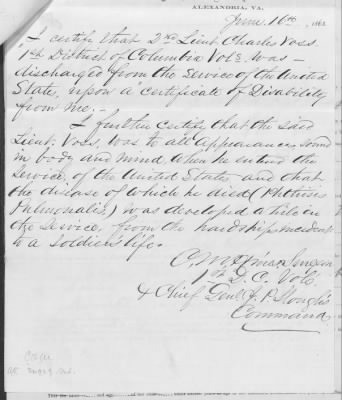 ALEXANDRIA, VA.
June 16th, 1863
I certify that 2nd Lieut Charles Voss.
1st District of Columbia Vols. was
discharged from the Service of the United
State, upon a certificate of Disability
from me.
I further certify that the said
Lieut. Voss, was to all appearances sound
in body and mind, when he entered the
Service, of the United States and that
the disease of which he died (Phthisis
Pulmonalis,) was developed while in
the Service, from the hardships incident
to a Soldiers life.
Surgeon
1st D.C. Vols.
& Chief Genl J. P. Slough's
Command